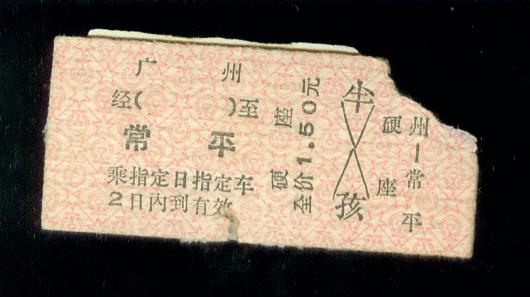 广 州
经( )至
常 平
乘指定日指定车
2日内到有效
硬 座
全价1.50元
半 孩
硬 座
州—常平